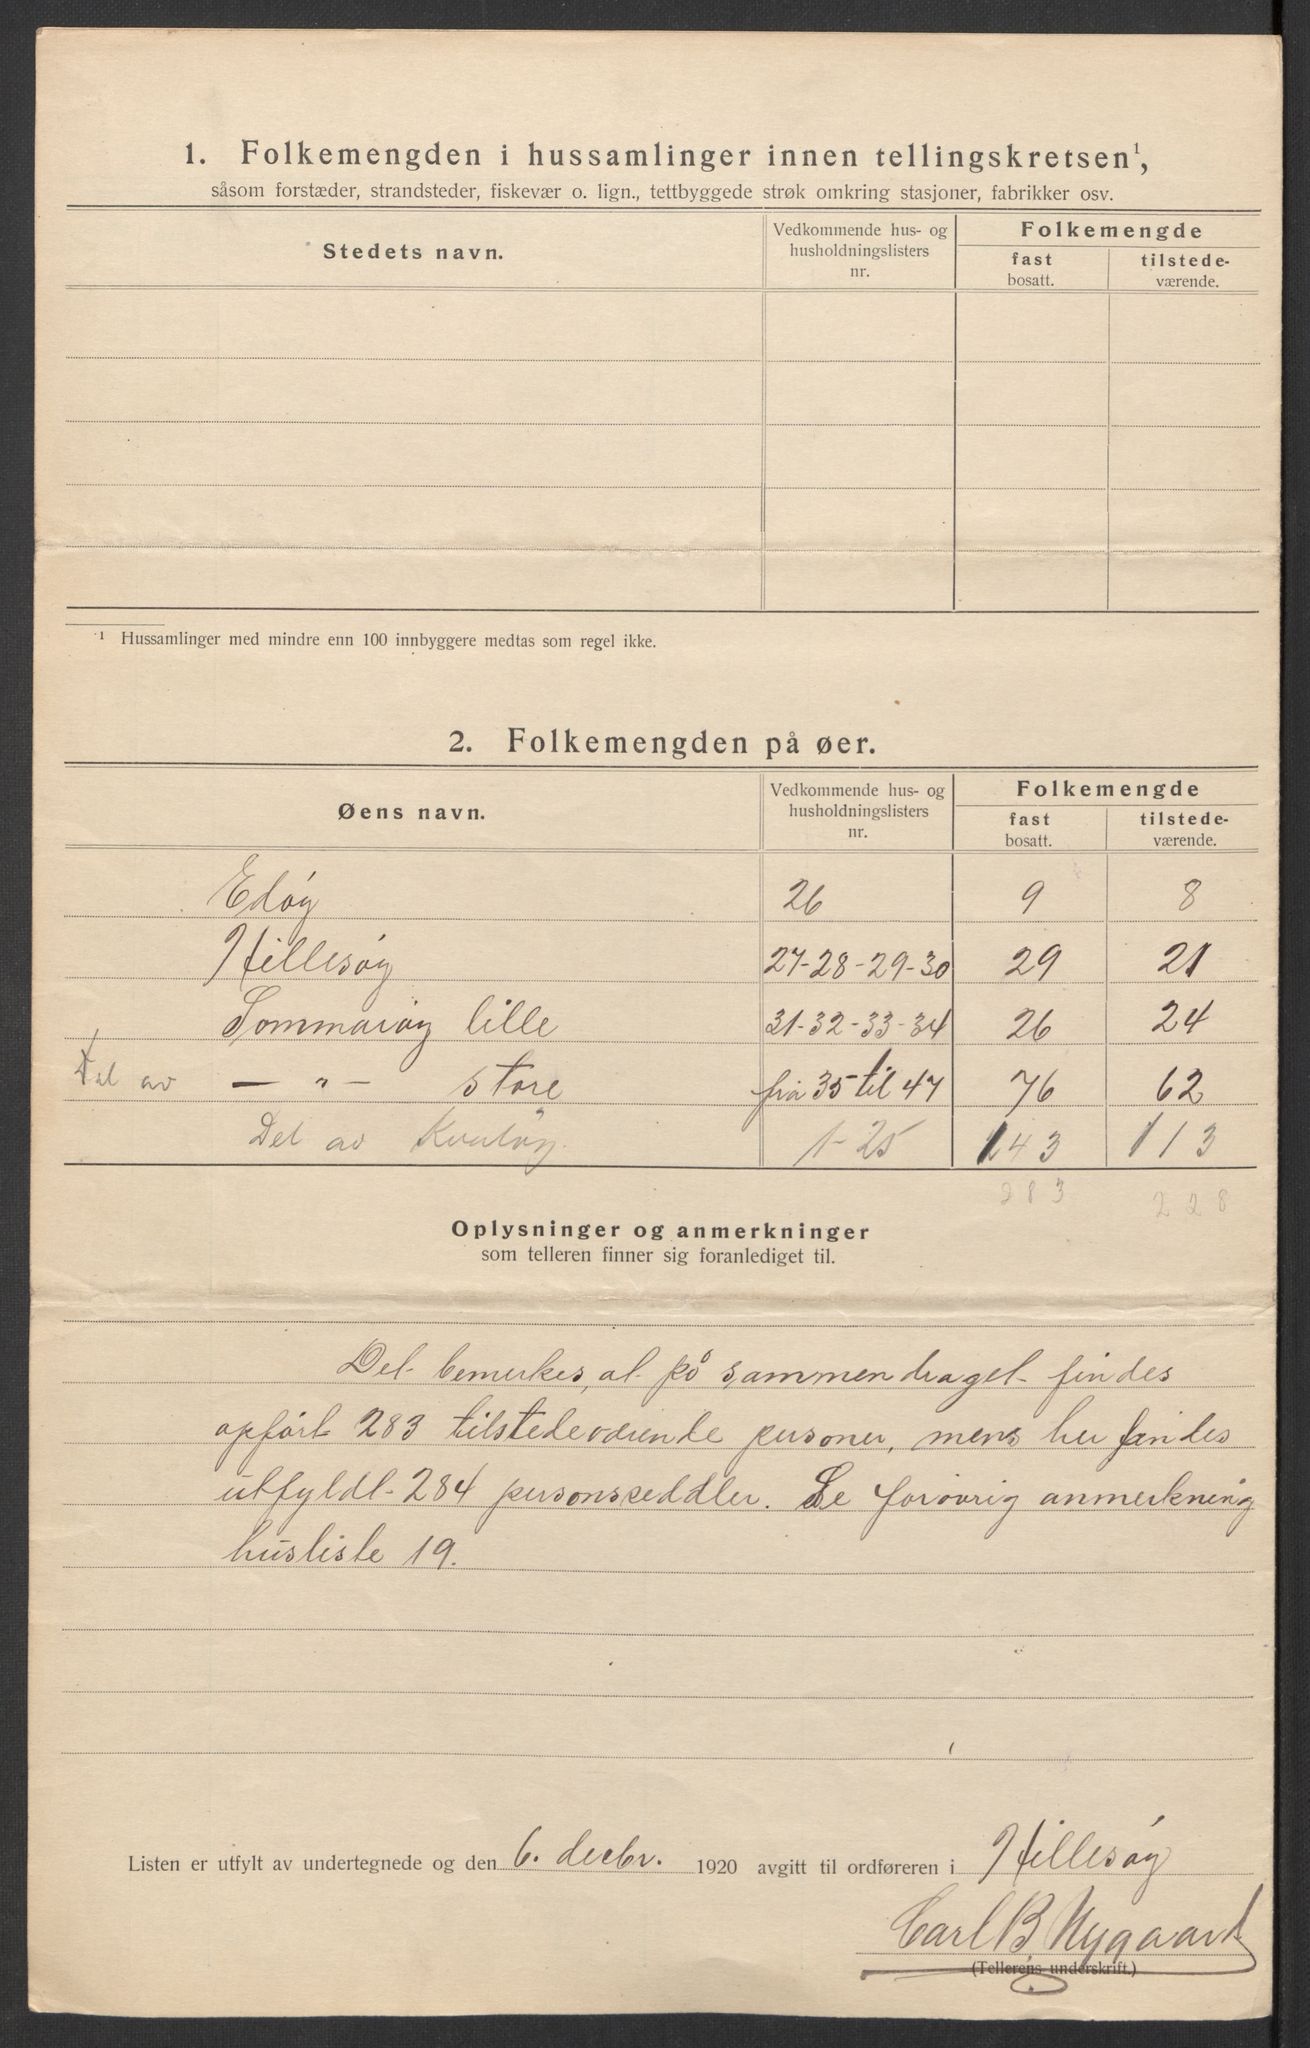 1. Folkemengden i hussamlinger innen tellingskretsen¹,
såsom forstæder, strandsteder, fiskevær o. lign., tettbyggede strøk omkring stasjoner, fabrikker osv.
Stedets navn.
Vedkommende hus- og
husholdningslisters
nr.
Folkemengde
fast
bosatt.
tilstede-
værende.
¹ Hussamlinger med mindre enn 100 innbyggere medtas som regel ikke.
2. Folkemengden på øer.
Øens navn.
Vedkommende hus- og
husholdningslisters
nr.
Folkemengde
fast
bosatt.
tilstede-
værende.
Edøy 26 9 8
Hillesøy 27-28-29-30 29 21
Sommarøy lille 31-32-33-34 26 24
Del av — „ — store fra 35 til 47 76 62
Del av Kvaløy. 1-25 143 113
283 228
Oplysninger og anmerkninger
som telleren finner sig foranlediget til.
Det bemerkes, at på sammendraget findes
opført 283 tilstedeværende personer, mens her findes
utfyldt 284 personseddler. Se forøvrig anmerkning
husliste 19.
Listen er utfylt av undertegnede og den 6. decbr. 1920 avgitt til ordføreren i Hillesøy
Carl B. Nygaard
(Tellerens underskrift.)